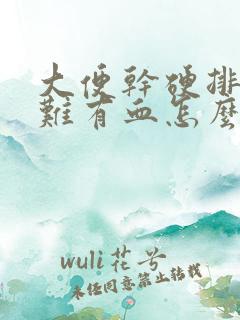 大便幹硬排
難有血怎麼
wuli花兮
未经同意禁止转载